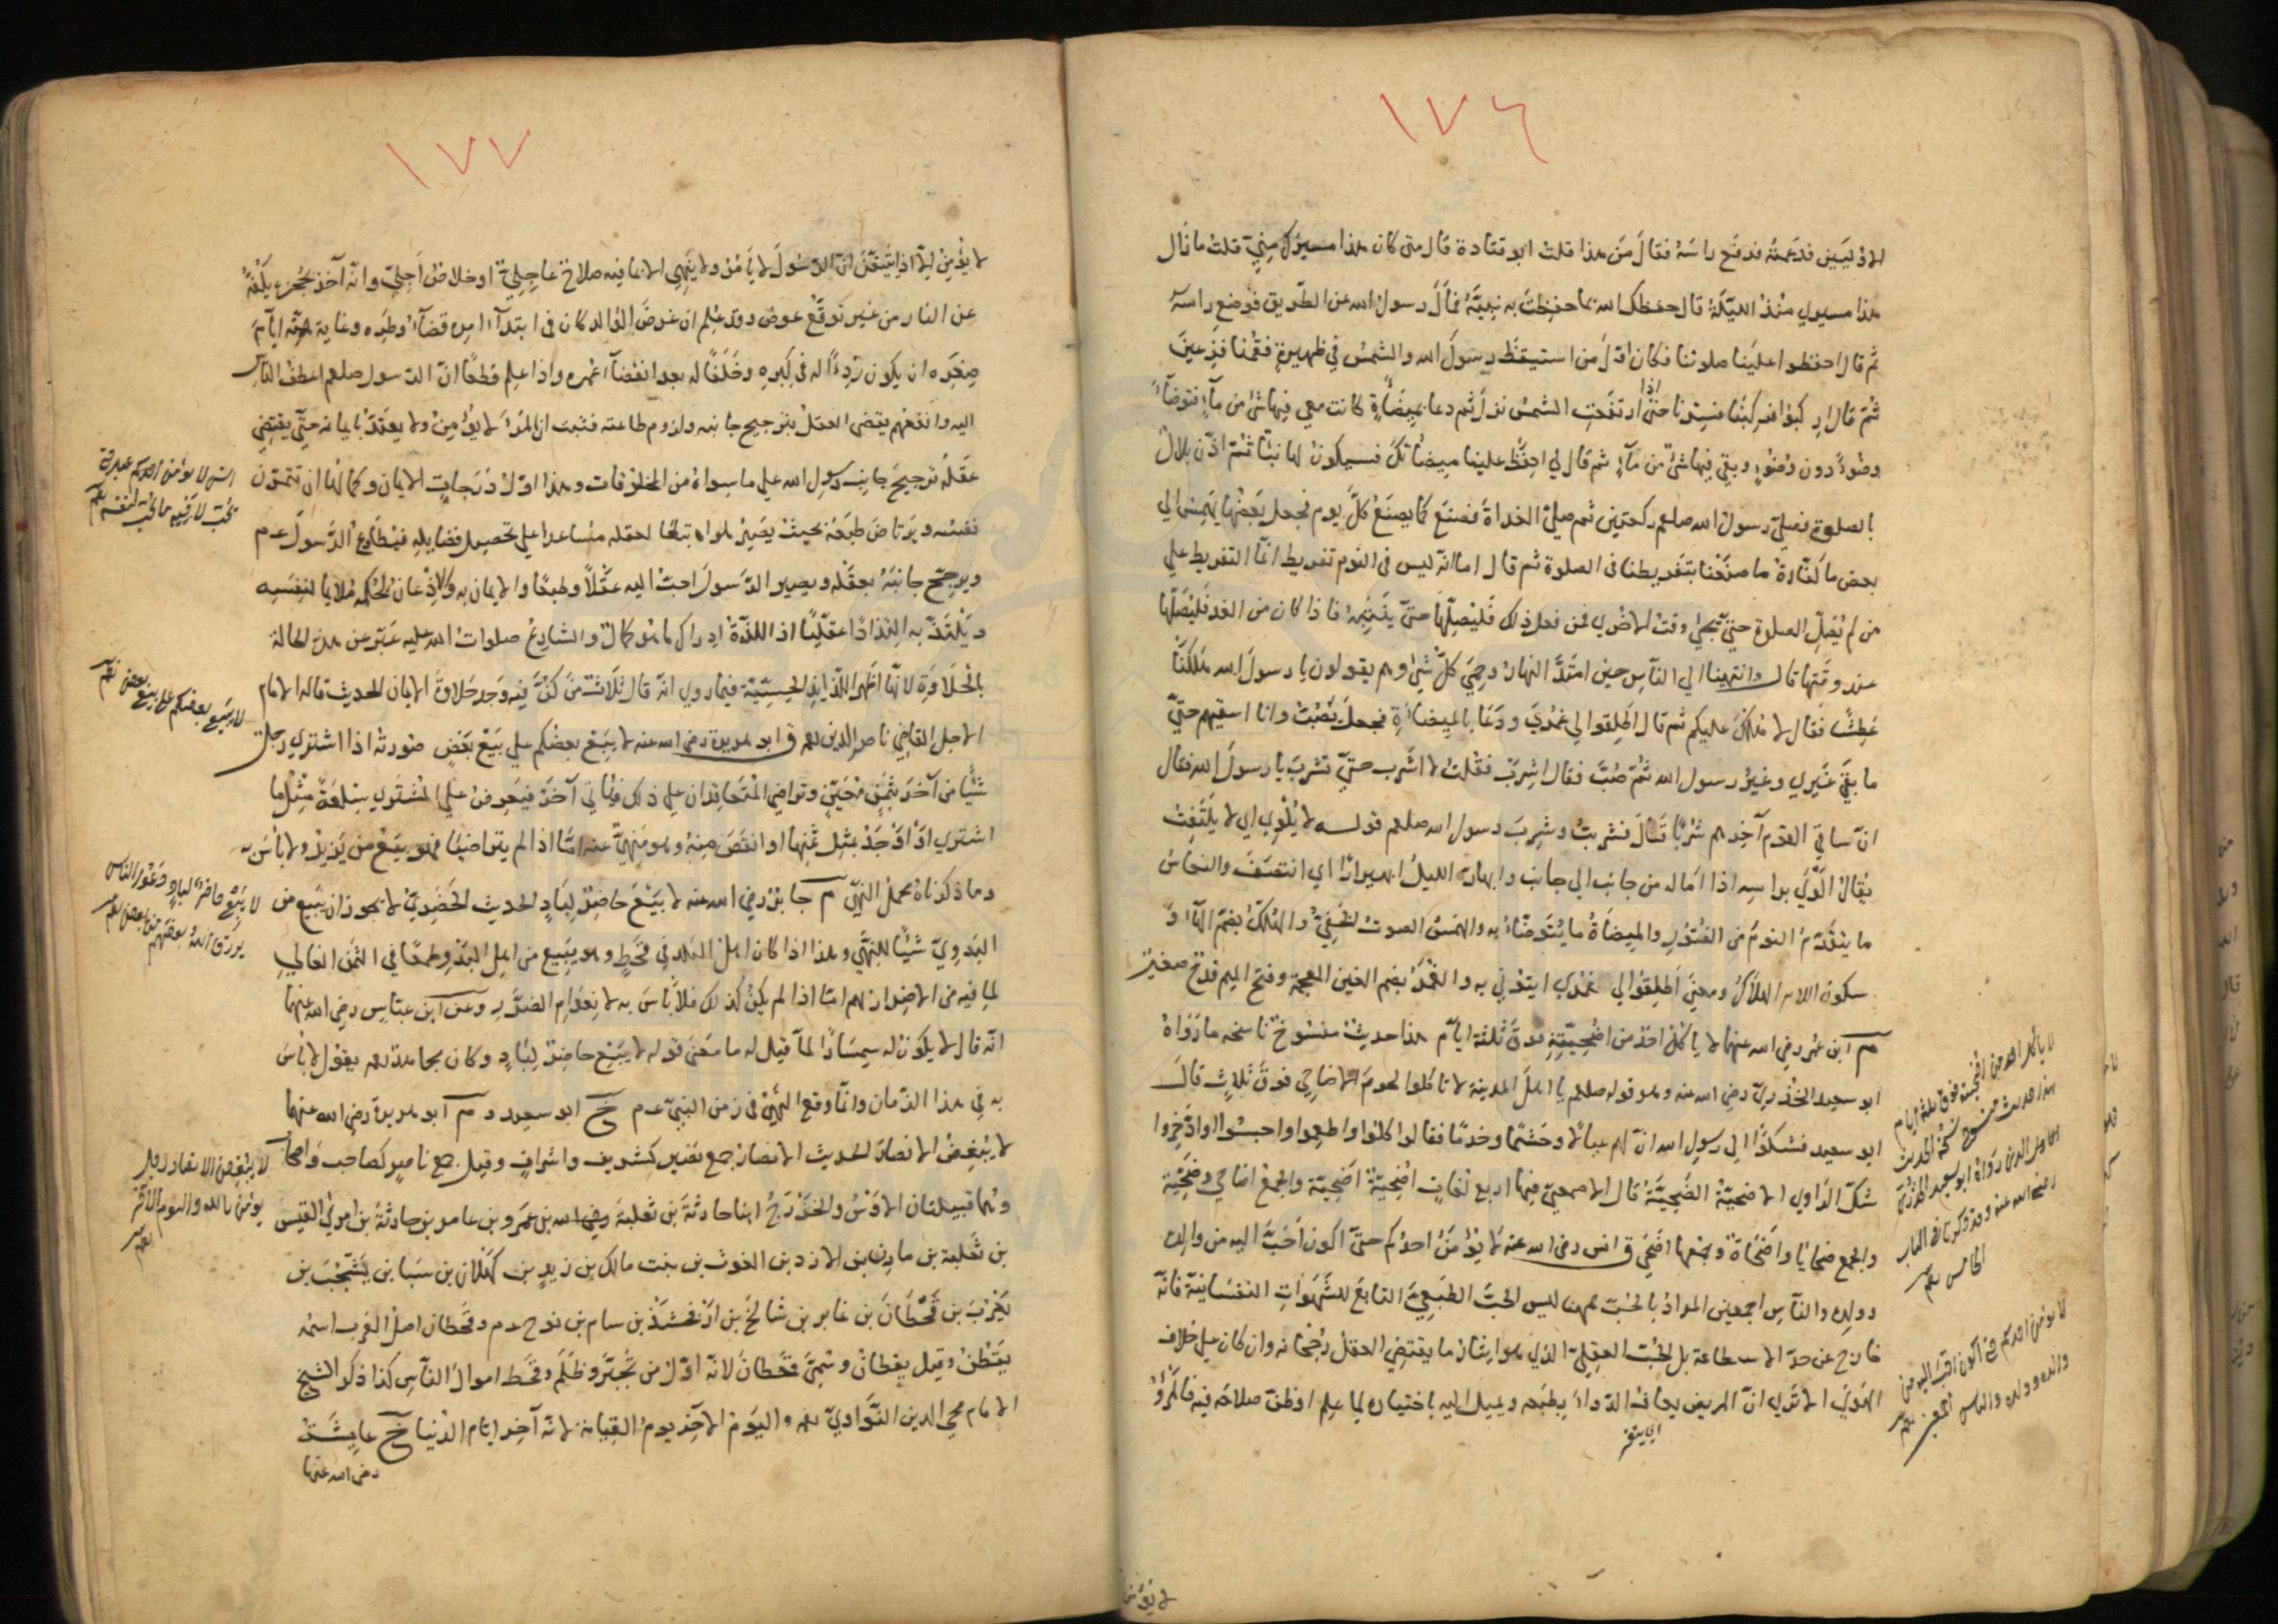 ١٧٦
الاوليين فدعمته فرفع راسه فقال من هذا قلت ابو قتادة قال متى كان هذا مسيرك مني قلت ما زال
هذا مسيري منذ الليلة قال حفظك الله بما حفظت به نبيه فمال رسول الله عن الطريق فوضع راسه
ثم قال احفظوا علينا صلوتنا فكان اول من استيقظ رسول الله والشمس في ظهره فقمنا فزعين
ثم قال اركبوا فركبنا فسرنا حتى اذا ارتفعت الشمس نزل ثم دعا بميضأة كانت معي فيها شئ من ماء فتوضأ
وضوءا دون وضوء وبقي فيها شئ من ماء ثم قال لي احفظ علينا ميضأتك فسيكون لها نبأ ثم اذن بلال
بالصلوة فصلى رسول الله صلعم ركعتين ثم صلى الغداة فصنع كما يصنع كل يوم فجعل بعضنا يهمس الي
بعض ما كفارة ما صنعنا بتفريطنا في الصلوة ثم قال اما انه ليس في النوم تفريط انما التفريط على
من لم يصل الصلوة حتى يجئ وقت الاخرى فمن فعل ذلك فليصلها حتى ينتبه فاذا كان من الغد فليصلها
عند وقتها قال وانتهينا الى الناس حين امتد النهار وحمي كل شئ وهم يقولون يا رسول الله هلكنا
عطشا فقال لا هلك عليكم ثم قال اطلقوا لي غمري ودعا بالميضأة فجعل يصب وانا اسقيهم حتى
ما بقي غيري وغير رسول الله ثم صب فقال اشرب فقلت لا اشرب حتى تشرب يا رسول الله فقال
ان ساقي القوم آخرهم شربا قال فشربت وشرب رسول الله صلعم قوله لا يلوي اي لا يلتفت
يقال الوى براسه اذا اماله من جانب الى جانب وابهار الليل ابهيرارا اي انتصف والنعاس
ما يتقدم النوم من الفتور والميضأة ما يتوضأ به والهمس الصوت الخفي والهلك بضم الهاء و
سكون اللام الهلاك ومعنى اطلقوا لي غمري ايتوني به والغمر بضم الغين المعجمة وفتح الميم قدح صغير
م ابن عمر رضي الله عنهما لا ياكل احد من اضحيته فوق ثلثة ايام هذا حديث منسوخ ناسخه ما رواه
ابو سعيد الخدري رضي الله عنه وهو قوله صلعم يا اهل المدينة لا تاكلوا لحوم الاضاحي فوق ثلاث قال
ابو سعيد فشكوا الى رسول الله ان لهم عيالا وحشما وخدما فقالوا كلوا واطعموا واحبسوا او ادخروا
شك الراوي الاضحية الضحية قال الاصمعي فيها اربع لغات اضحية اضحية والجمع اضاحي وضحية
والجمع ضحايا واضحاة وجمعها اضحى ق انس رضي الله عنه لا يؤمن احدكم حتى اكون احب اليه من والده
وولده والناس اجمعين المراد بالحب ههنا ليس الحب الطبيعي التابع للشهوات النفسانية فانه
خارج عن حد الاستطاعة بل الحب العقلي الذي هو ايثار ما يقتضي العقل رجحانه وان كان على خلاف
الهوى الا ترى ان المريض يعاف الدواء بطبعه ويميل اليه باختياره لما علم او ظن صلاحه فيه فالمرؤ
اي يتنفر
لا يؤمن
لا ياكل احد من اضحيته فوق ثلثة ايام
هذا حديث منسوخ نسخه الحديث
الذي رواه ابو سعيد الخدري
رضي الله عنه وقد ذكرناه في الباب
الخامس
لا يؤمن احدكم حتى اكون احب اليه من
والده وولده والناس اجمعين
١٧٧
لا يؤمن الا اذا تيقن ان الرسول لا يامر ولا ينهى الا بما فيه صلاح عاجلي او خلاص آجلي وانه آخذ بحجزه يكفه
عن النار من غير توقع عوض وقد علم ان غرض الوالد كان في ابتداء امره قضاء وطره وغاية همته ايام
صغره ان يكون ردءا له في كبره وخلفا له بعد انقضاء عمره واذا علم قطعا ان الرسول صلعم اعطف الناس
اليه وانفعهم يقضي العقل بترجيح جانبه ولزوم طاعته فثبت ان المرء لا يؤمن ولا يعتد بايمانه حتى يقتضي
عقله ترجيح جانب رسول الله على ما سواه من المخلوقات وهذا اول درجات الايمان وكمالها ان تتمرن
نفسه ويرتاض طبعه بحيث يصير هواه تبعا لعقله مساعدا على تحصيل فضايله فيطاوع الرسول عم
ويرجح جانبه بعقله ويصير الرسول احب اليه عقلا وطبعا والايمان به والاذعان لحكمه ملايما لنفسه
ويلتذ به التذاذا عقليا اذ اللذة ادراك ما هو كمال والشارع صلوات الله عليه عبر عن هذه الحالة
بالحلاوة لانها اظهر اللذايذ الحسية فيما روي انه قال ثلاث من كن فيه وجد حلاوة الايمان الحديث قاله الامام
الاجل القاضي ناصر الدين رحمه ق ابو هريرة رضي الله عنه لا يبع بعضكم على بيع بعض صورته اذا اشترى رجل
شيئا من آخر بثمن معين وتراضى المتعاقدان على ذلك فياتي آخر فيعرض على المشتري سلعة مثل ما
اشترى او اوجد بمثل ثمنها او انقص منه وهو منهي عنه اما اذا لم يتراضيا فهو بيع من يزيد ولا باس به
وما ذكرناه محمل النهي م جابر رضي الله عنه لا يبع حاضر لباد الحديث الحضري لا يجوز ان يبيع من
البدوي شيئا للنهي وهذا اذا كان اهل البلد في قحط وهو يبيع من اهل البدو طمعا في الثمن الغالي
لما فيه من الاضرار بهم اما اذا لم يكن كذلك فلا باس به لانعدام الضرر وعن ابن عباس رضي الله عنهما
انه قال لا يكون له سمسارا لما قيل له ما معنى قوله لا يبع حاضر لباد وكان مجاهد رحمه يقول لا باس
به في هذا الزمان وانما وقع النهي في زمن النبي عم خ ابو سعيد و م ابو هريرة رضي الله عنهما
لا يبغض الانصار الحديث الانصار جمع نصير كشريف واشراف وقيل جمع ناصر كصاحب واصحاب
وهما قبيلتان الاوس والخزرج ابنا حارثة بن ثعلبة بن عمرو بن عامر بن حارثة بن امرئ القيس
بن ثعلبة بن مازن بن الازد بن الغوث بن بنت مالك بن زيد بن كهلان بن سبا بن يشجب بن
يعرب بن قحطان بن عابر بن شالخ بن ارفخشذ بن سام بن نوح عم وقحطان اصل العرب اسمه
يقطن وقيل يقطان وسمي قحطان لانه اول من تجبر وظلم وقحط اموال الناس كذا ذكر الشيخ
الامام محي الدين النواوي رحمه واليوم الآخر يوم القيامة لانه آخر ايام الدنيا خ عايشة
رضي الله عنها
انس لا يؤمن احدكم عبد حتى
يحب لاخيه ما يحب لنفسه
لا يبيع بعضكم على بيع بعض
لا يبع حاضر لباد ودعوا الناس
يرزق الله بعضهم من بعض
لا يبغض الانصار رجل
يؤمن بالله واليوم الآخر